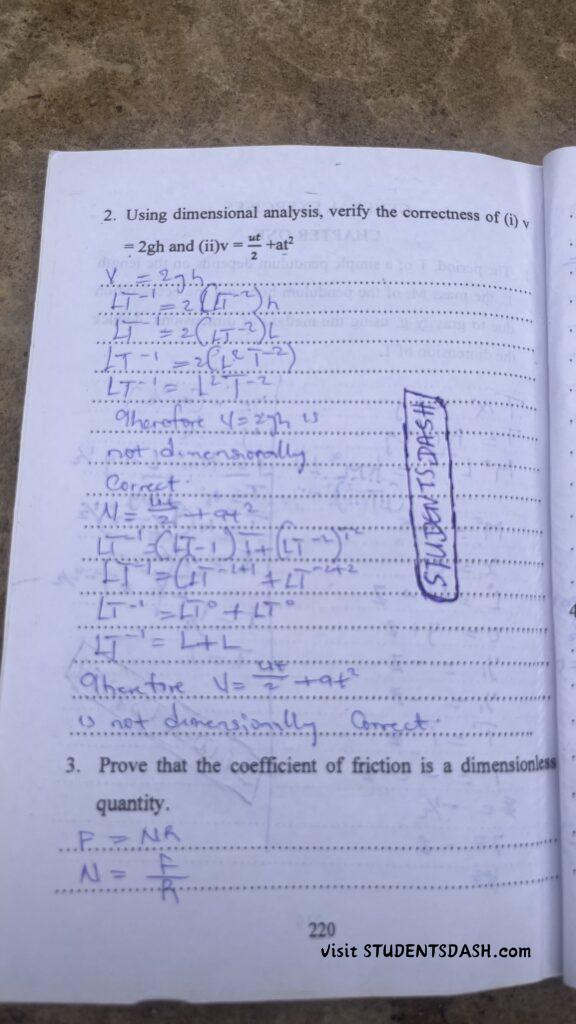 2. Using dimensional analysis, verify the correctness of (i) v
= 2gh and (ii)v = ut/2 +at²
V = 2gh
LT⁻¹ = 2(LT⁻²)h
LT⁻¹ = 2(LT⁻²)L
LT⁻¹ = 2(L²T⁻²)
LT⁻¹ = L²T⁻²
Therefore V = 2gh is
not dimensionally
Correct.
V = ut/2 + at²
LT⁻¹ = (LT⁻¹)T + (LT⁻²)T²
LT⁻¹ = (LT⁻¹⁺¹ + LT⁻²⁺²
LT⁻¹ = LT⁰ + LT⁰
LT⁻¹ = L+L
Therefore V = ut/2 + at²
is not dimensionally Correct.
STUDENTSDASH
3. Prove that the coefficient of friction is a dimensionless
quantity.
F = NR
N = F/R
220
visit STUDENTSDASH.com
4